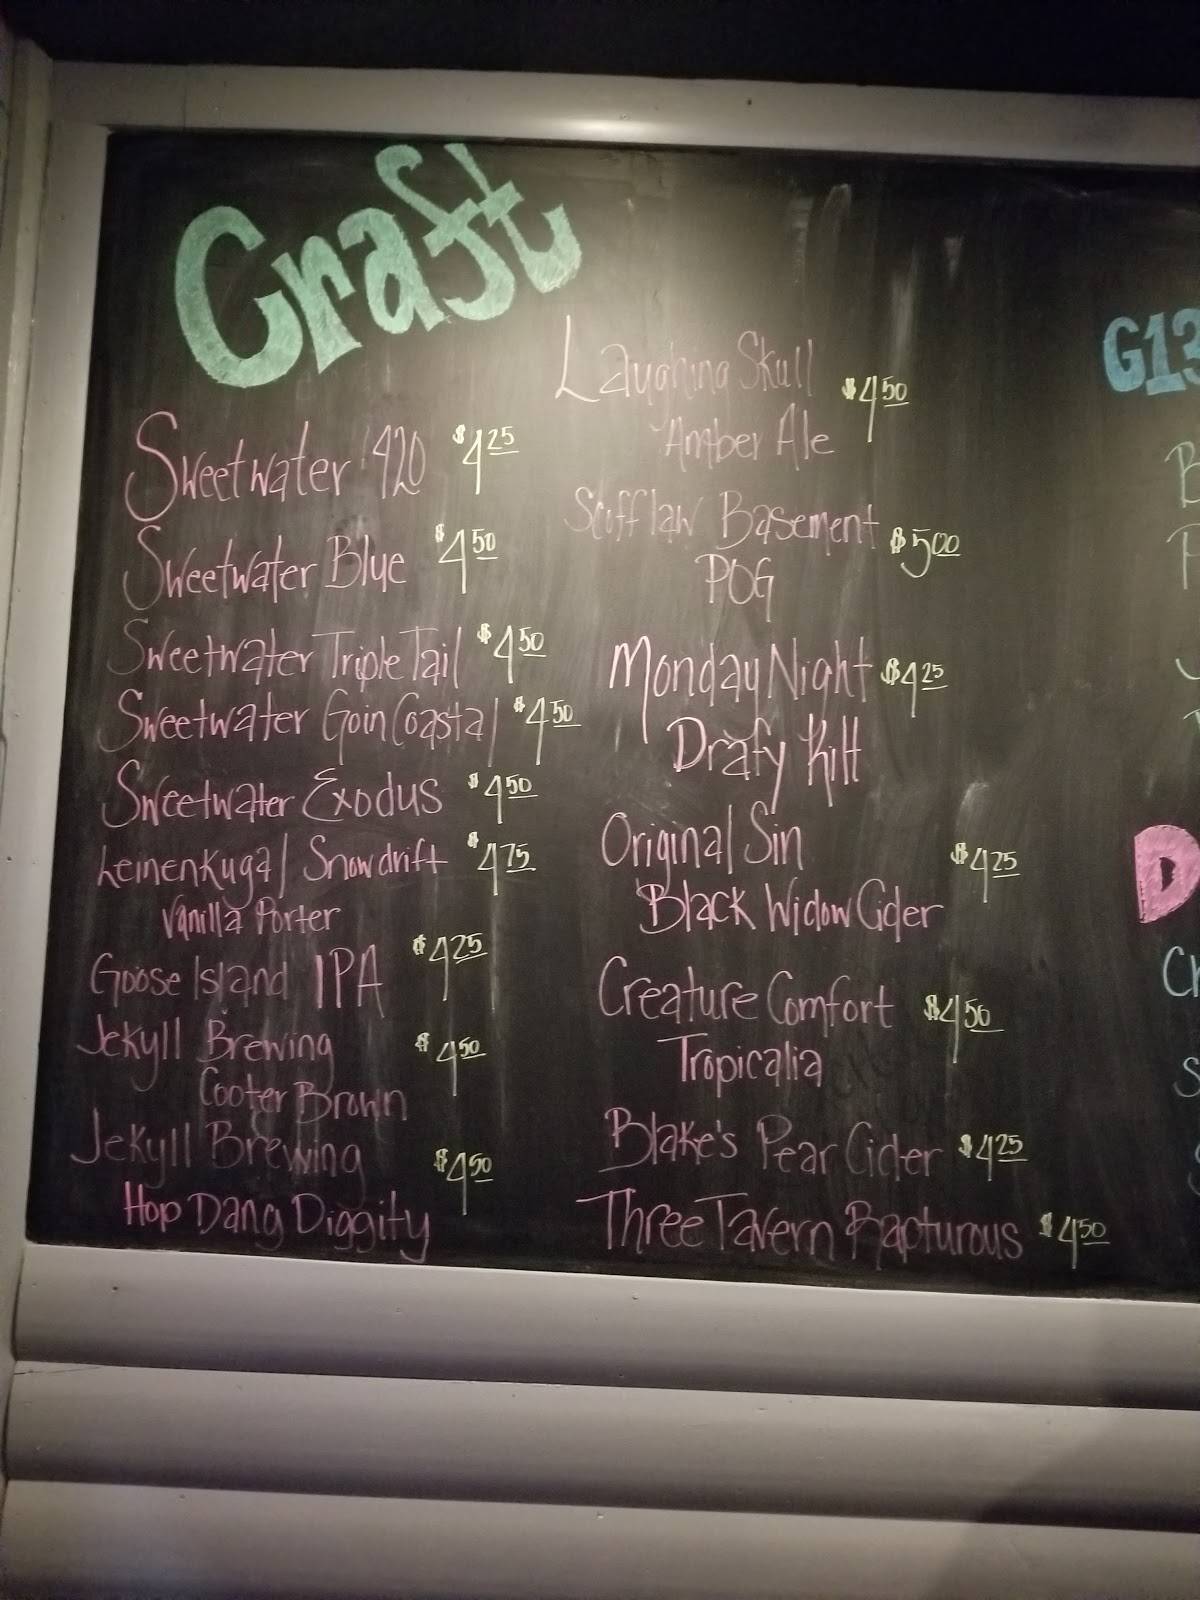 Craft
Sweetwater 420 $4.25
Sweetwater Blue $4.50
Sweetwater Triple Tail $4.50
Sweetwater Goin Coastal $4.50
Sweetwater Exodus $4.50
Leinenkugal Snowdrift $4.75
Vanilla Porter
Goose Island IPA $4.25
Jekyll Brewing $4.50
Cooter Brown
Jekyll Brewing $4.50
Hop Dang Diggity
Laughing Skull $4.50
Amber Ale
Scofflaw Basement $5.00
POG
Monday Night $4.25
Drafy Kilt
Original Sin $4.25
Black Widow Cider
Creature Comfort $4.50
Tropicalia
Blake's Pear Cider $4.25
Three Tavern Rapturous $4.50
G13
D